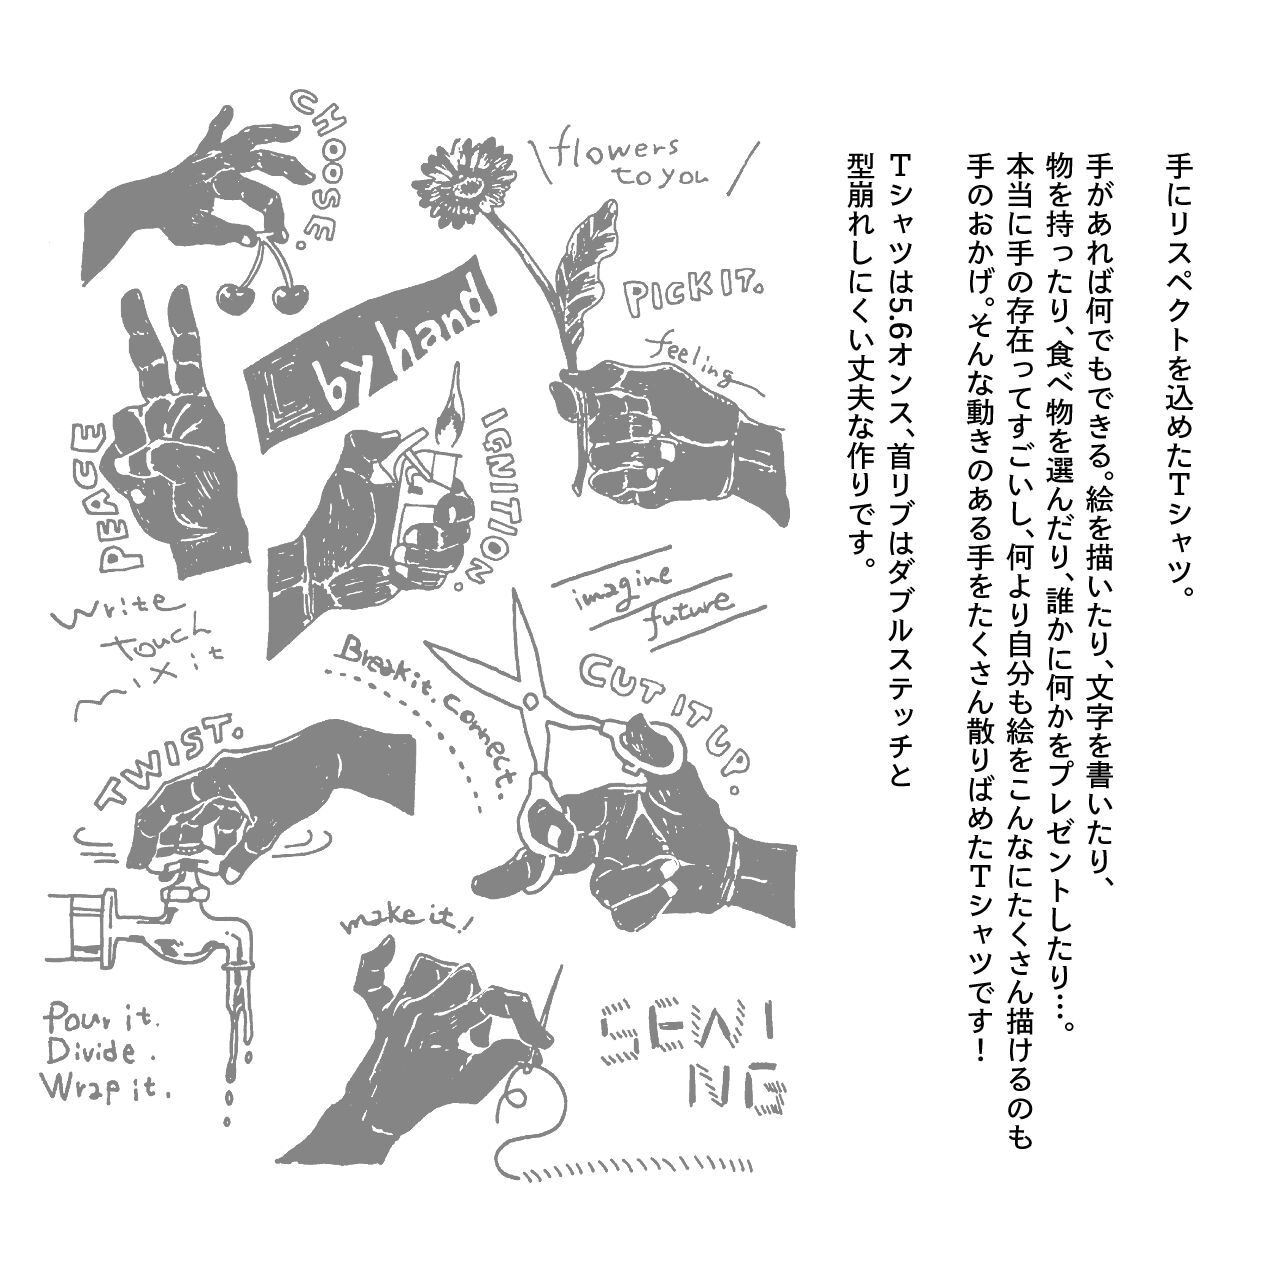 手にリスペクトを込めたTシャツ。
手があれば何でもできる。絵を描いたり、文字を書いたり、
物を持ったり、食べ物を選んだり、誰かに何かをプレゼントしたり…。
本当に手の存在ってすごいし、何より自分も絵をこんなにたくさん描けるのも
手のおかげ。そんな動きのある手をたくさん散りばめたTシャツです！
Tシャツは5.6オンス、首リブはダブルステッチと
型崩れしにくい丈夫な作りです。
CHOOSE.
flowers
to you
PICK IT.
feeling
by hand
PEACE
IGNITION.
Write
touch
mix it
imagine
future
Break it. Connect.
CUT IT UP.
TWIST.
make it!
Pour it.
Divide.
Wrap it.
SEWI
NG